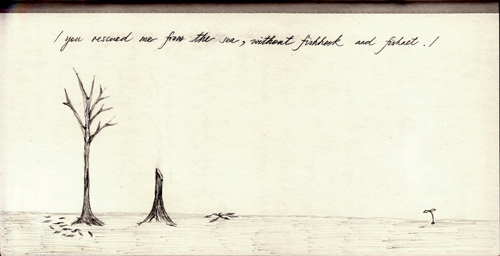 / you rescued me from the sea, without fishhook and fishnet. /